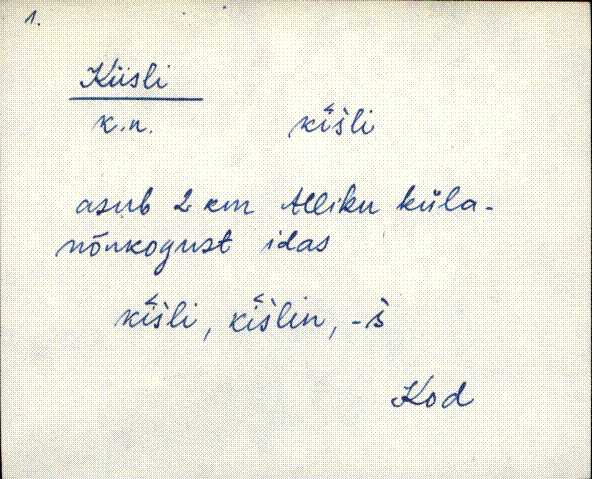 1.
Kiisli
k.n. kīšli
asub 2 km Alliku küla-
nõukogust idas
kīšli, kīšlin, -š
Kod